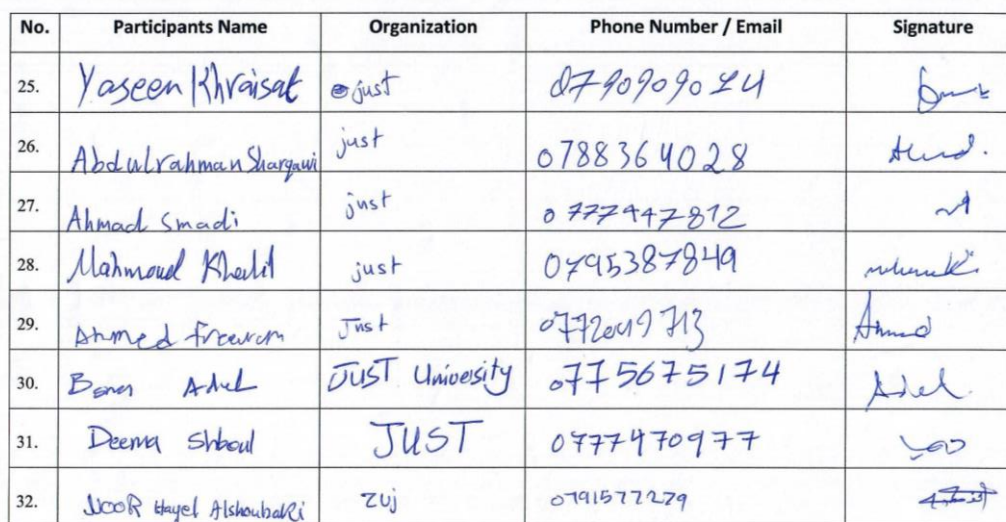 No. Participants Name Organization Phone Number / Email Signature
25. Yaseen Khraisat just 0790909014
26. Abdulrahman Sharqawi just 0788364028
27. Ahmad Smadi just 0777447812
28. Mahmoud Khalil just 0795387849
29. Ahmed Just Ahmed
30. Adel JUST University 0775675174 Adel
31. Deema Shboul JUST 0777470977
32. NOOR Hayel Alshoubaki ZUJ 0791577279